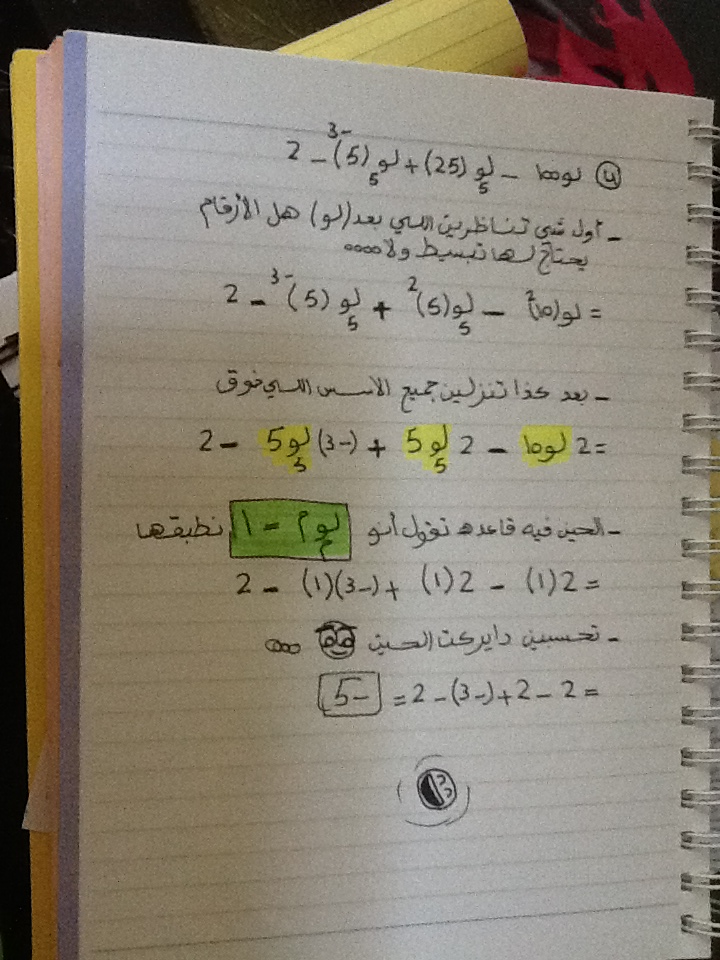 ٤ لو١٠٠ – لو٥ (25) + لو٥ (5)^3– – 2
– أول شي تناظرين اللي بعد (لو) هل الأرقام
يحتاج لها تبسيط ولا ٥٥٥٥
= لو(١٠)^2 – لو٥ (5)^2 + لو٥ (5)^3– – 2
– بعد كذا تنزلين جميع الأسس اللي فوق
= 2 لو١٠ – 2 لو٥ 5 + (3–) لو٥ 5 – 2
– الحين فيه قاعده تقول أنو لوم م = ١ نطبقها
= 2(1) – 2(1) + (3–)(1) – 2
– تحسبين دايركت الحين ٥٥٥
= 2 – 2 + (3–) – 2 = 5–